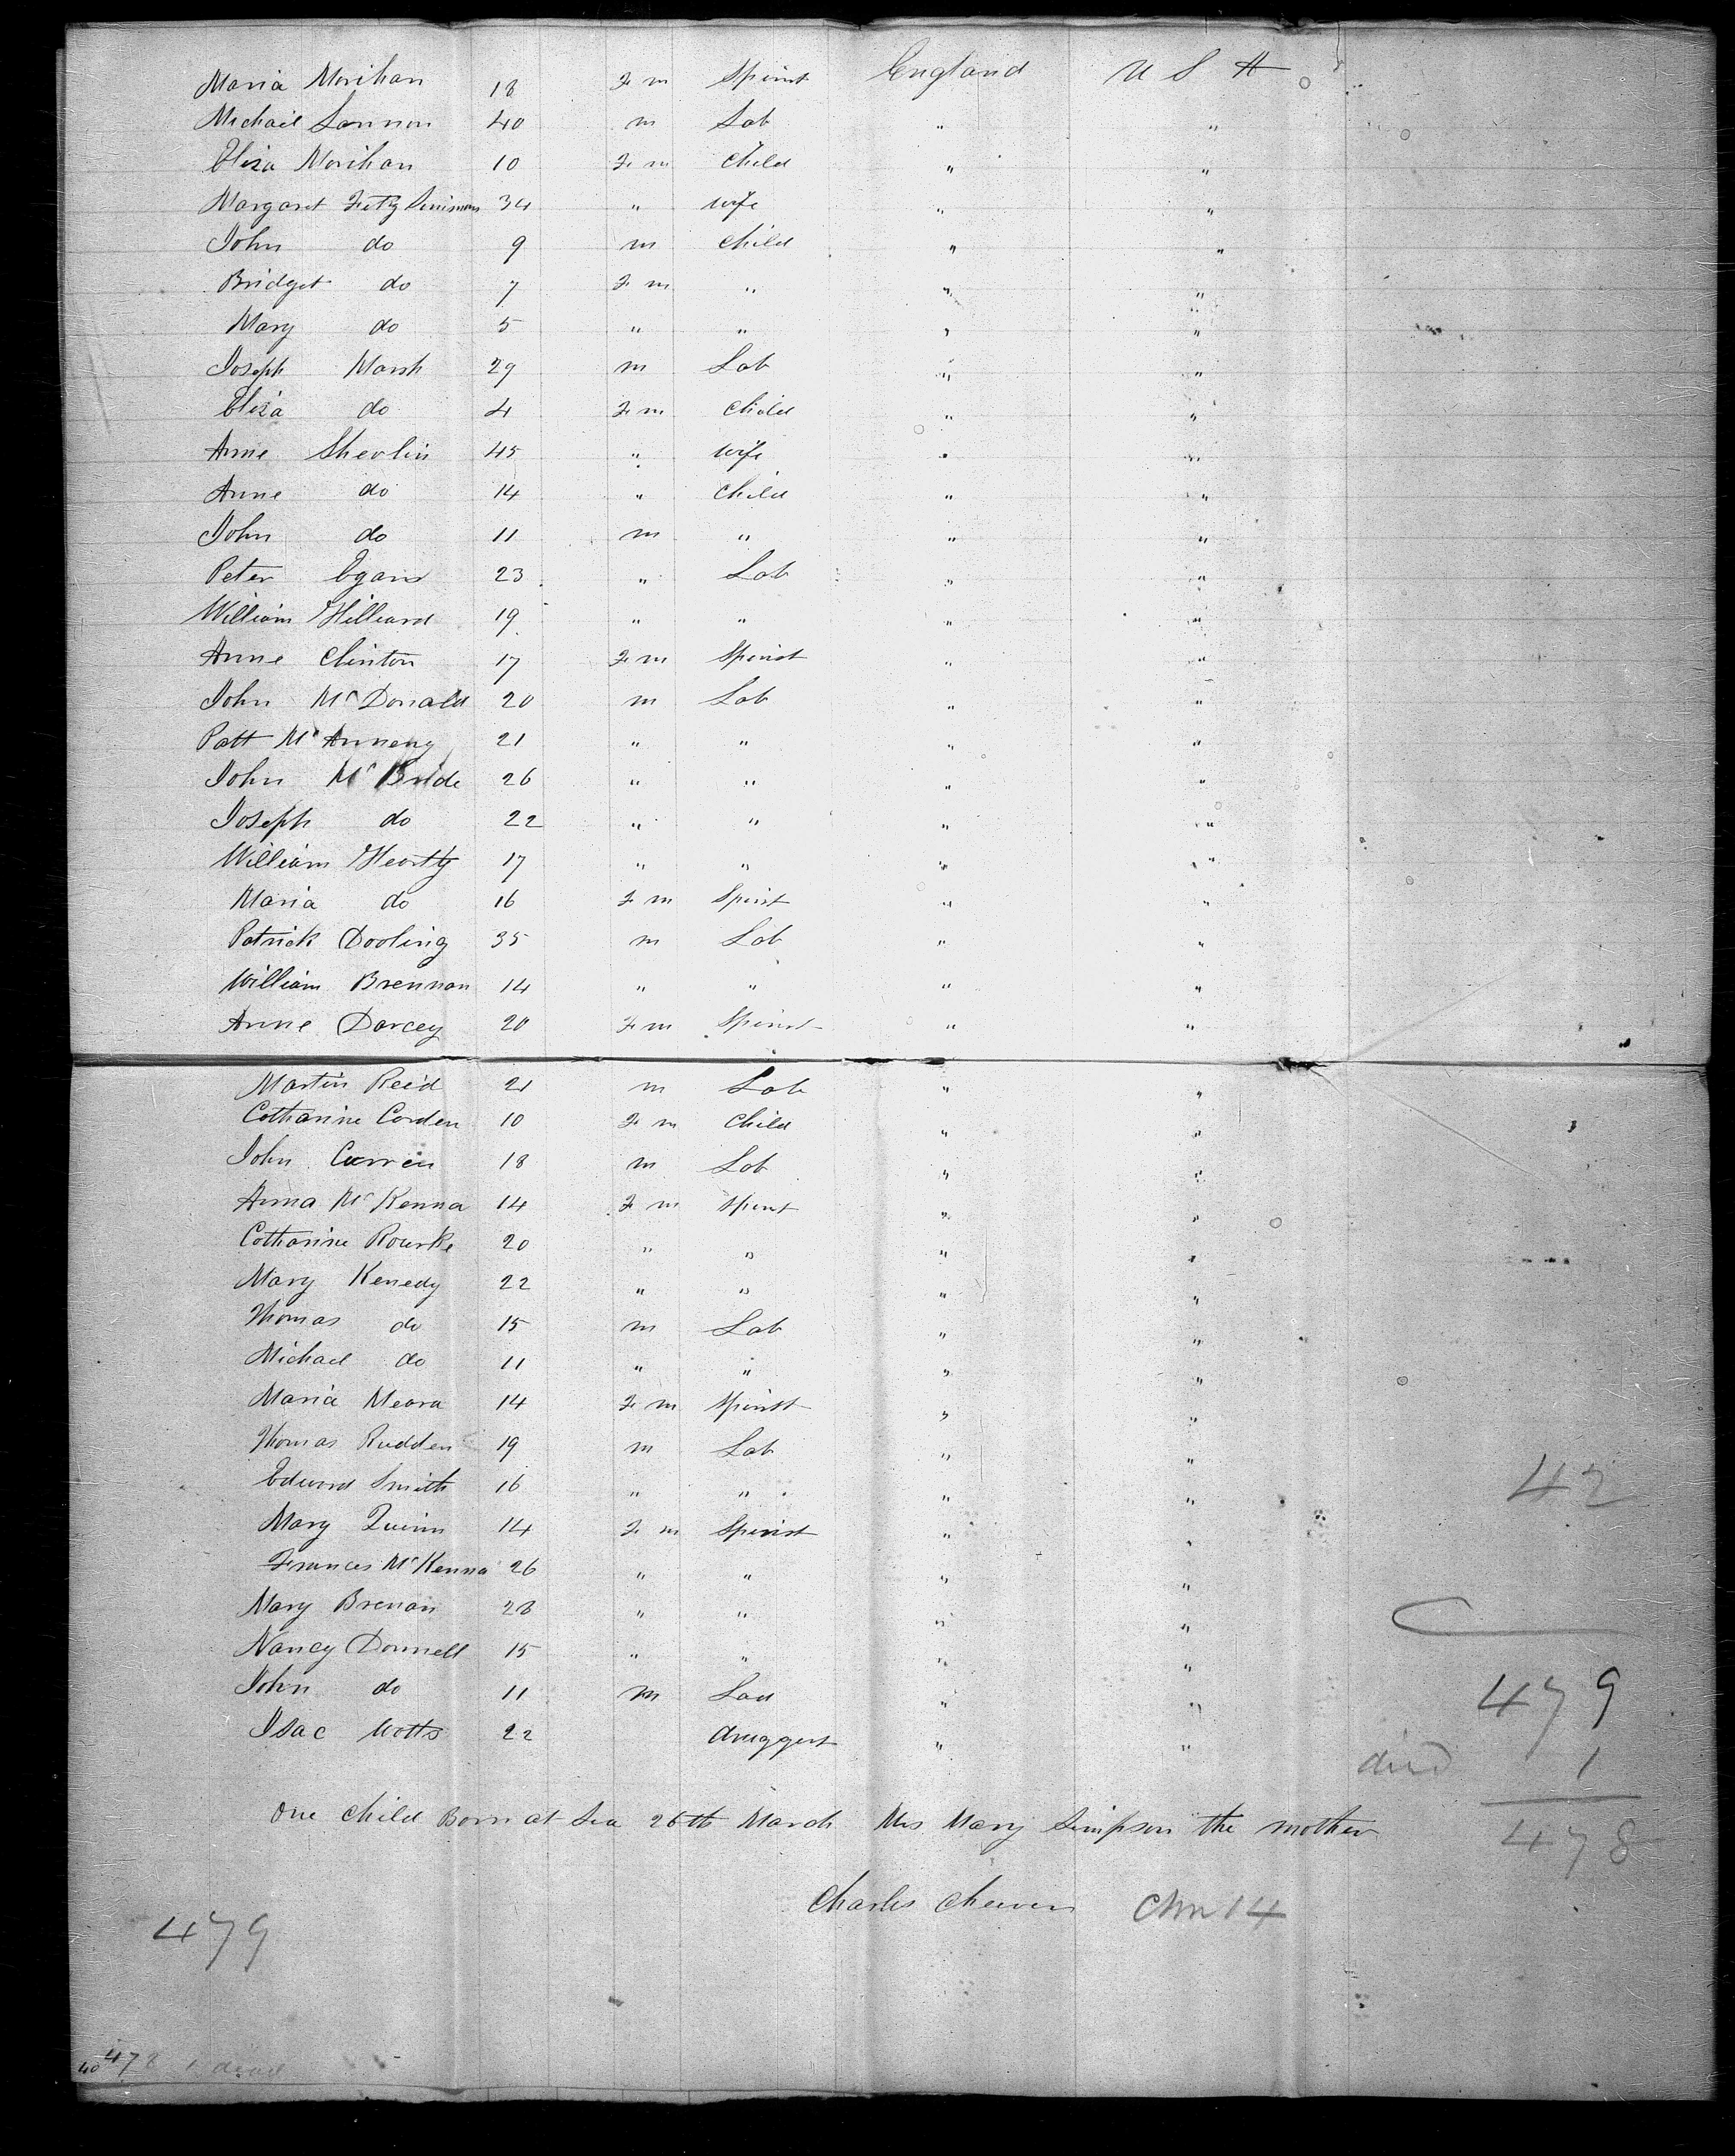 Maria Morihan 18 Fe m Spinst England U S A
Michail Lannon 40 m Lab " "
Eliza Morihan 10 Fe m Child " "
Margaret 34 " wife " "
John do 9 m Child " "
Bridget do 7 Fe m " " "
Mary do 5 " " " "
Joseph Marsh 29 m Lab " "
Eliza do 4 Fe m Child " "
Anne Shevlin 45 " wife " "
Anne do 14 " Child " "
John do 11 m " " "
Peter Egans 23 " Lab " "
William Hilliard 19 " " " "
Anne Clinton 17 Fe m Spinst " "
John Mc Donald 20 m Lab " "
Patt Mc Anneny 21 " " " "
John Mc Bride 26 " " " "
Joseph do 22 " " " "
William Heartty 17 " " " "
Maria do 16 Fe m Spinst " "
Patrick Dooling 35 m Lab " "
William Brennan 14 " " " "
Anne Darcey 20 Fe m Spinst " "
Martin Reid 21 m Lab " "
Catharine Corden 10 Fe m Child " "
John Curren 18 m Lab " "
Anna Mc Kenna 14 Fe m Spinst " "
Catharine Rourke 20 " " " "
Mary Kenedy 22 " " " "
Thomas do 15 m Lab " "
Michael do 11 " " " "
Maria Meara 14 Fe m Spinst " "
Thomas Rudden 19 m Lab " "
Edward Smith 16 " " " "
42
Mary Quinn 14 Fe m Spinst " "
Frances Mc Kenna 26 " " " "
Mary Brenan 28 " " " "
Nancy Donnell 15 " " " "
John do 11 m Lab " "
479
Isac Watts 22 druggist " "
died 1
One Child Born at Sea 26th March Mrs Mary Simpson the mother
478
Charles Cheever
479
40 478 1 dead